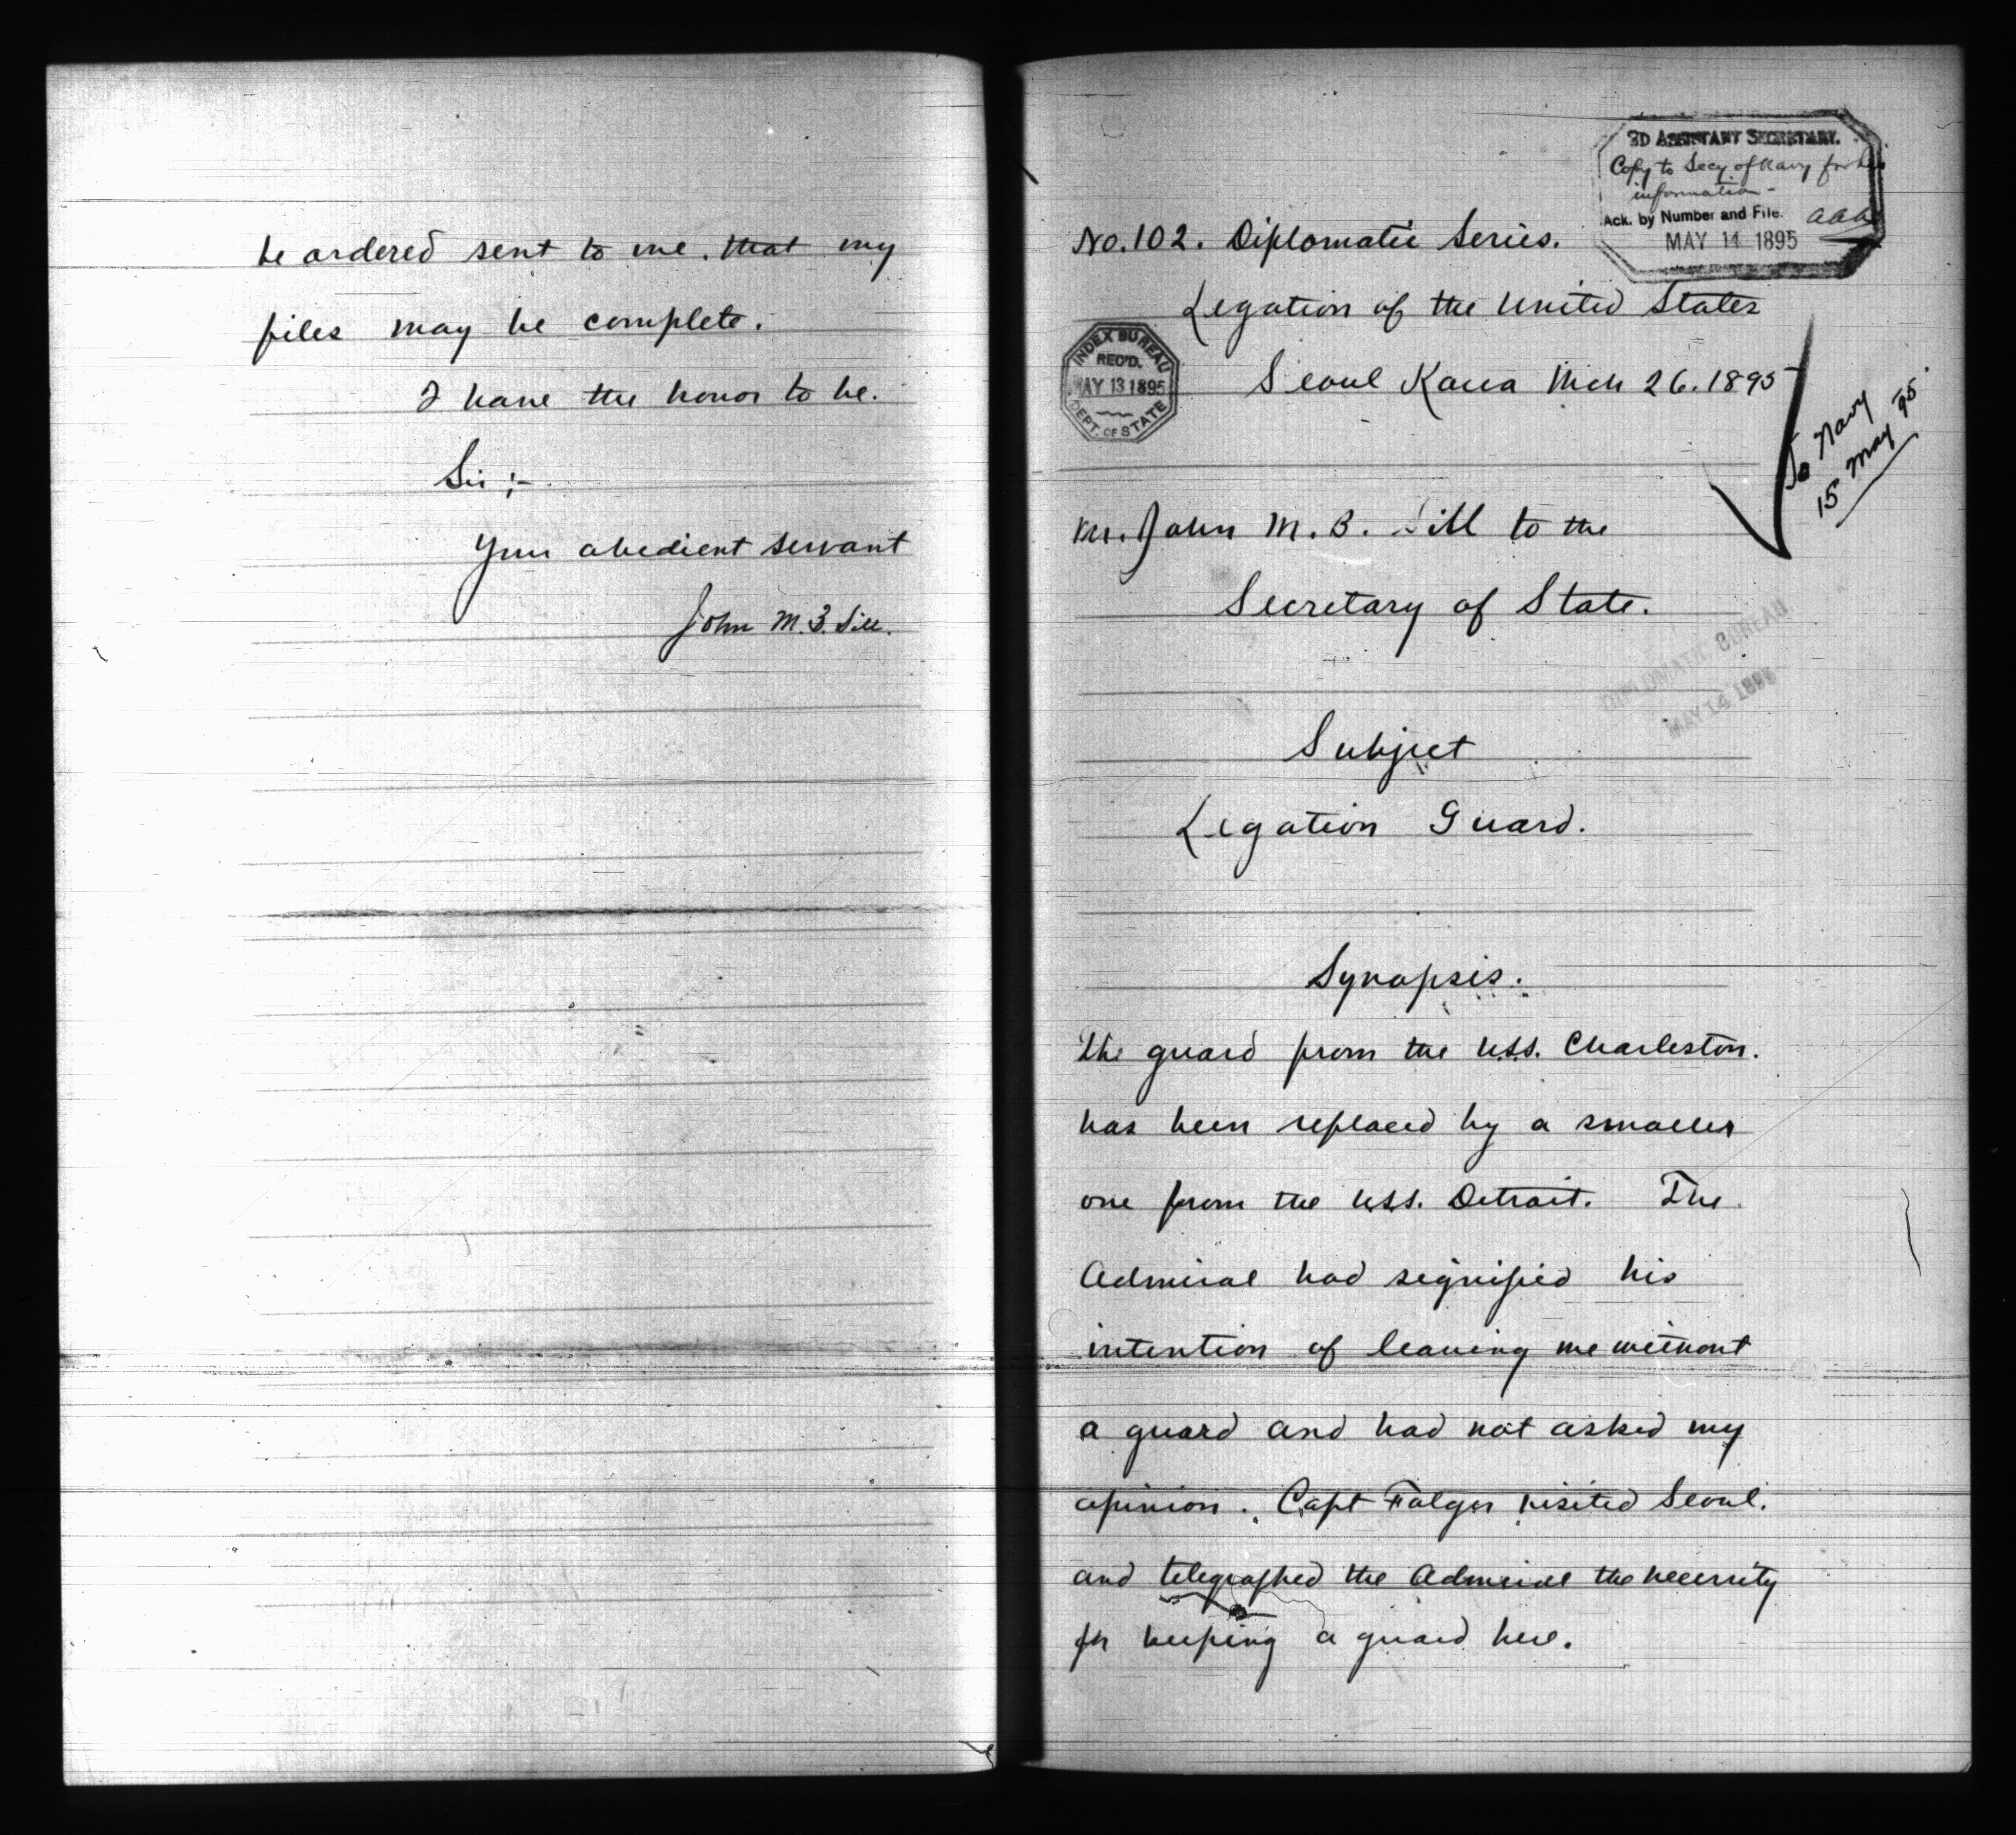 be ordered sent to me. that my
files may be complete.
I have the honor to be.
Sir ;-
Your obedient servant
John M. B. Sill.
3D ASSISTANT SECRETARY.
Copy to Secy. of Navy for his
information -
Ack. by Number and File.
MAY 14 1895
No. 102. Diplomatic Series.
Legation of the United States
INDEX BUREAU
REC'D.
MAY 13 1895
DEPT. OF STATE
Seoul Korea Mch 26. 1895
To Navy
15 May 95
Mr. John M. B. Sill to the
Secretary of State.
DIPLOMATIC BUREAU
MAY 14 1895
Subject
Legation Guard.
Synopsis.
The guard from the U.S.S. Charleston.
has been replaced by a smaller
one from the U.S.S. Detroit. The
Admiral had signified his
intention of leaving me without
a guard and had not asked my
opinion. Capt Folger visited Seoul.
and telegraphed the Admiral the necessity
for keeping a guard here.